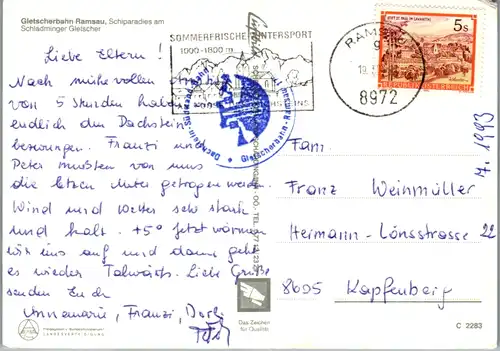 Gletscherbahn Ramsau, Schiparadies am
Schladminger Gletscher
Liebe Eltern!
Nach mühevollen
von 5 Stunden haben
endlich den Dachstein
bezwungen. Franzi und
Peter mußten von uns
die letzten Meter getragen werden.
Wind und Wetter sehr stark
und kalt. +5° Jetzt wärmen
wir uns auf und dann geht
es wieder Talwärts. Liebe Grüße
senden Euch
Annemarie, Franzi, Doris
Peter
SOMMERFRISCHE WINTERSPORT
1000-1800 m
Dachstein-Südwandbahn
Gletscherbahn - Ramsau
RAMSAU
8972
5s
STIFT ST. PAUL IM LAVANTTAL
REPUBLIK ÖSTERREICH
Fam.
Franz Weinmüller
Hermann-Lönsstrasse 22
8605 Kapfenberg
M. 1993
Das Zeichen
für Qualität
C 2283